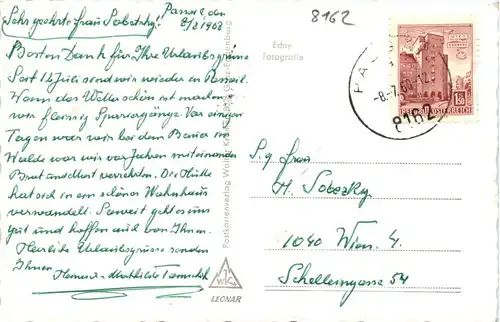 Passail, den
8/7 1968
Sehr geehrte Frau Sobetzky!
Besten Dank für Ihre Urlaubsgrüsse
Seit 1. Juli sind wir wieder in Passail.
Wenn das Wetter schön ist machen
wir fleissig Spaziergänge. Vor einigen
Tagen waren wir bei dem Bauer im
Walde wo wir vor Jahren miteinander
Brot und Most verzehrten. Die Hütte
hat sich in ein schönes Wohnhaus
verwandelt. Soweit geht es uns
gut und hoffen auch von Ihnen.
Herzliche Urlaubsgrüsse senden
Ihnen
8162
Echte
Fotografie
Postkartenverlag Walter
LEONAR
8162
REPUBLIK ÖSTERREICH
S. g. Frau
H. Sobezky
1040 Wien 4.
Schelleingasse 54